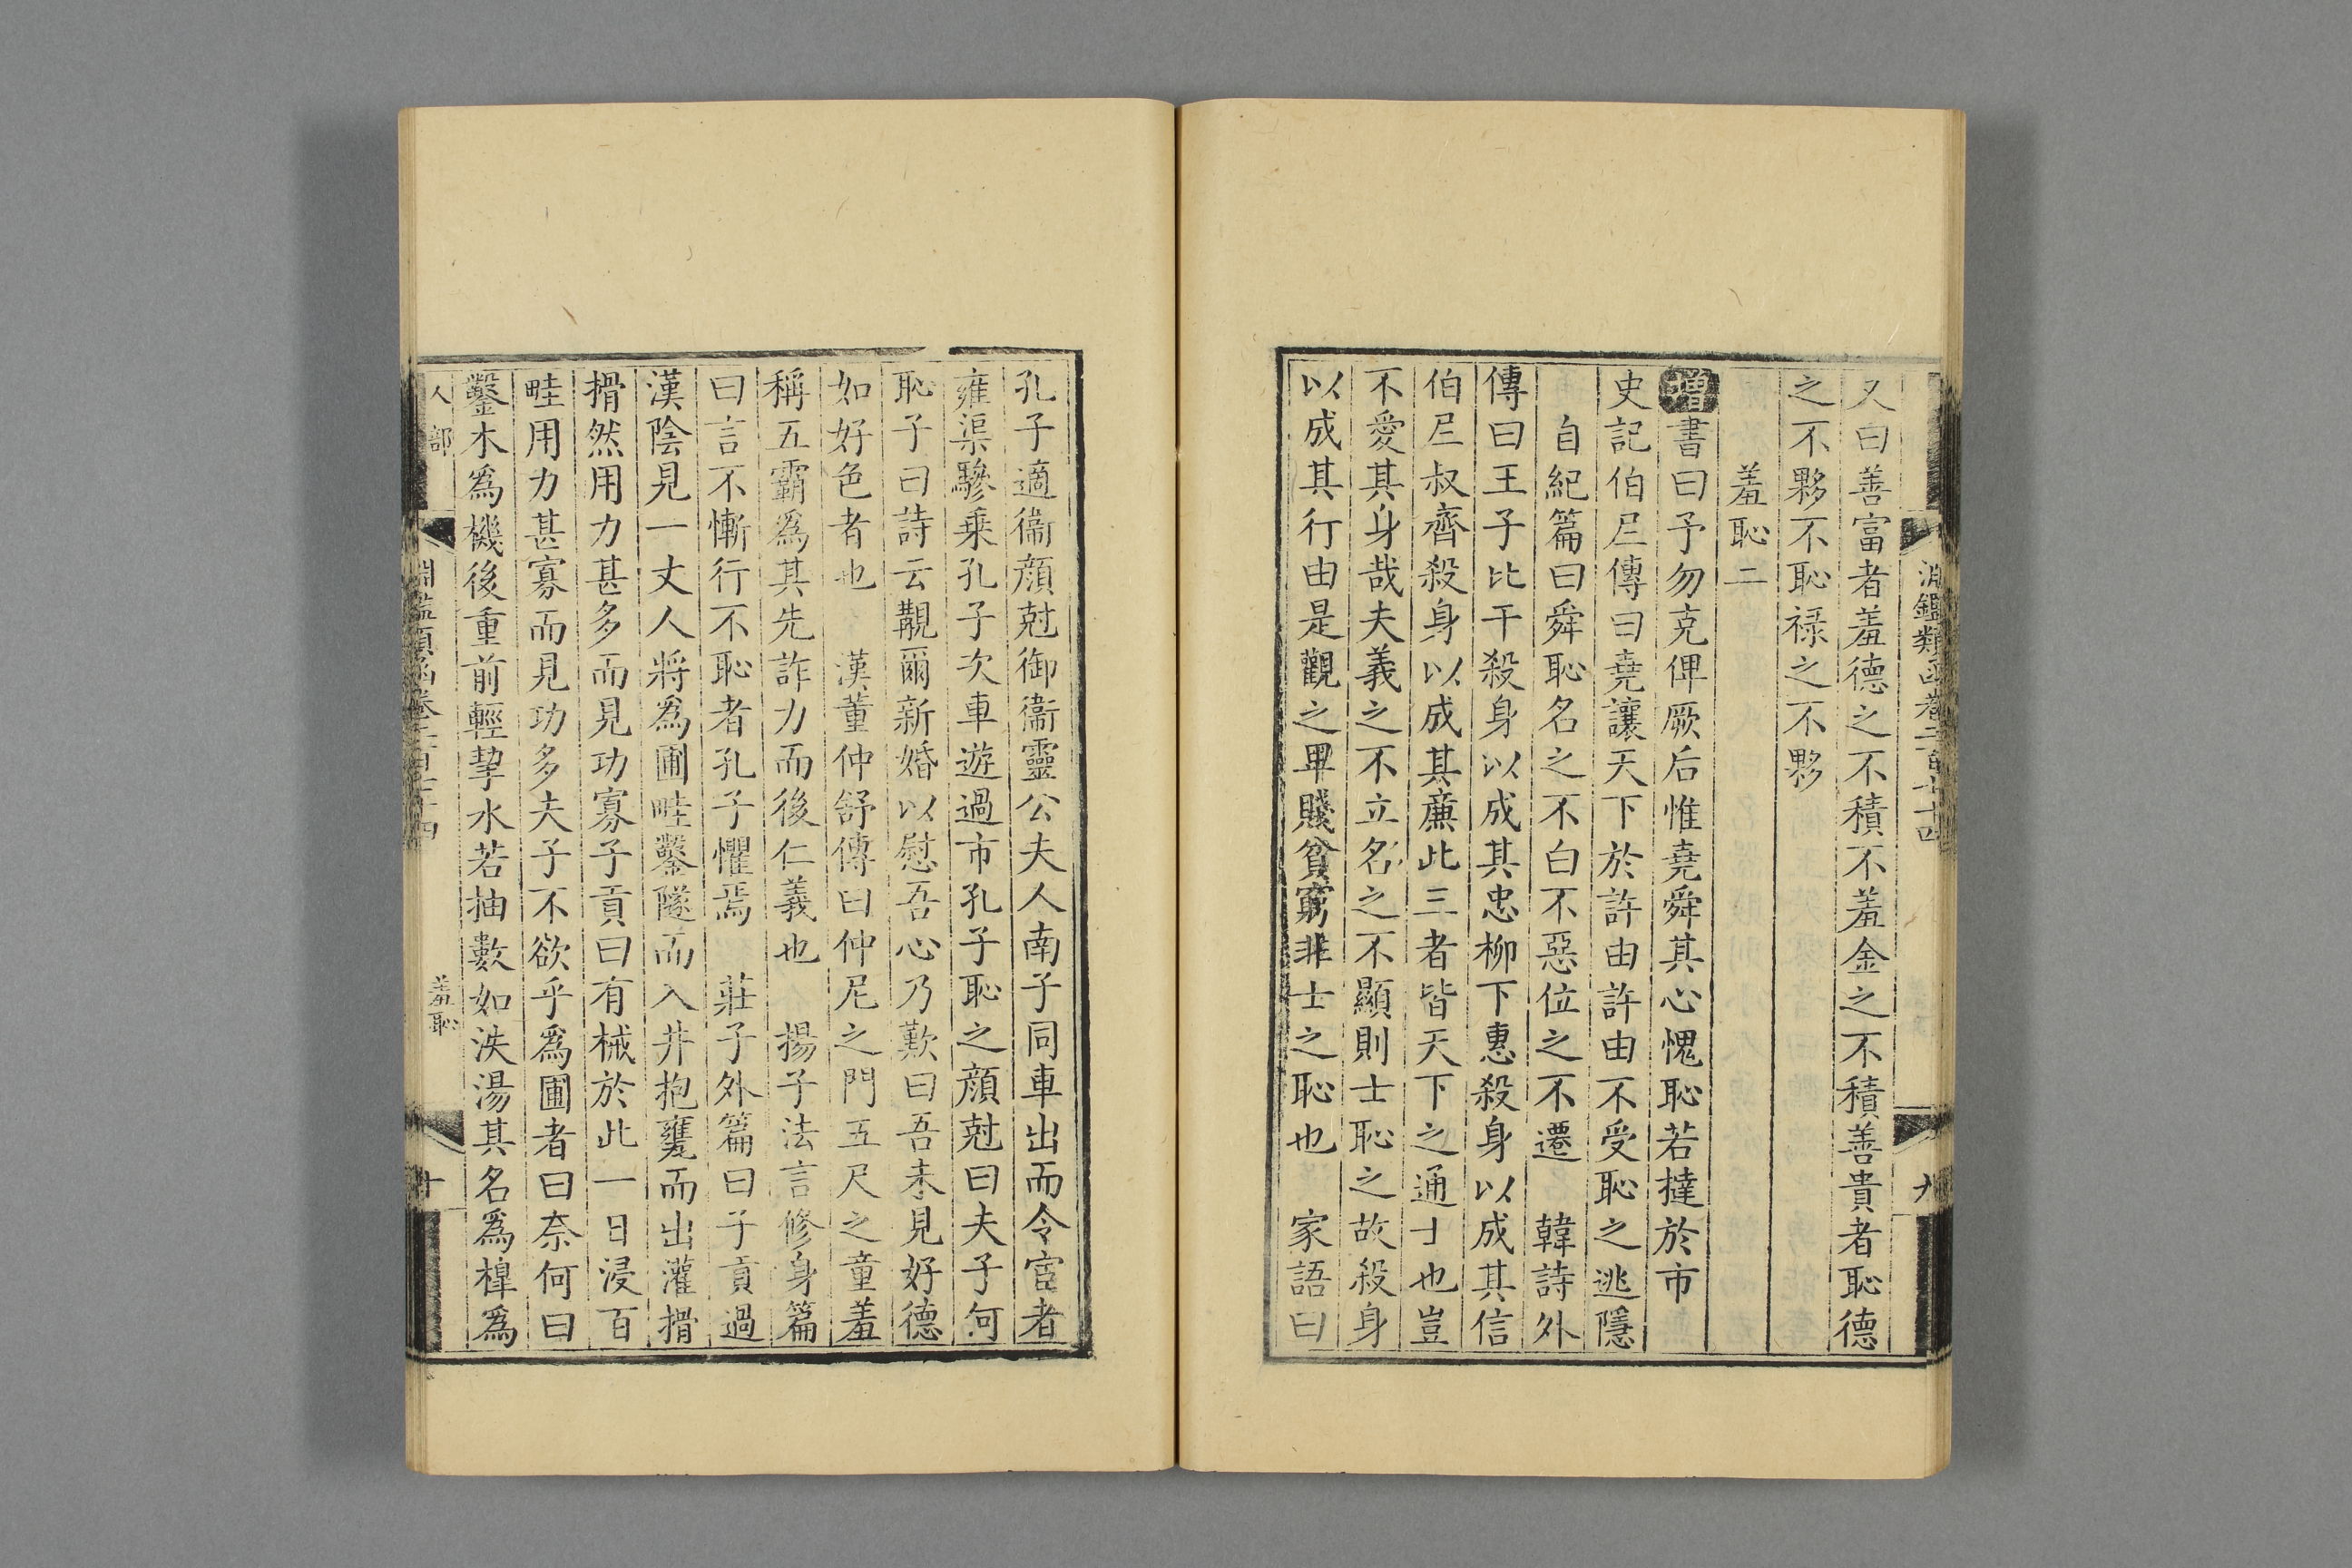 又曰善富者羞德之不積不羞金之不積善貴者恥德
之不夥不恥禄之不夥
羞恥二
增書曰予勿克俾厥后惟堯舜其心愧恥若撻於市
史記伯𡰥傳曰堯讓天下於許由許由不受恥之逃隱
自紀篇曰舜恥名之不白不惡位之不遷 韓詩外
傳曰王子比干殺身以成其忠柳下惠殺身以成其信
伯𡰥叔齊殺身以成其廉此三者皆天下之通士也豈
不愛其身哉夫義之不立名之不顯則士恥之故殺身
以成其行由是觀之卑賤貧窮非士之恥也 家語曰
淵鑑類函卷二百七十四
九
孔子適衞顔尅御衞靈公夫人南子同車出而令宦者
雍渠驂乗孔子次車遊過市孔子恥之顔尅曰夫子何
恥子曰詩云覯爾新婚以慰吾心乃歎曰吾未見好德
如好色者也 漢董仲舒傳曰仲尼之門五尺之童羞
稱五霸爲其先詐力而後仁義也 揚子法言修身篇
曰言不慚行不恥者孔子懼焉 莊子外篇曰子貢過
漢陰見一丈人將爲圃畦鑿隧而入井抱甕而出灌搰
搰然用力甚多而見功寡子貢曰有械於此一日浸百
畦用力甚寡而見功多夫子不欲乎爲圃者曰奈何曰
鑿木爲機後重前輕挈水若抽數如泆湯其名爲槔爲
人部
淵鑑類函卷二百七十四
羞恥
十